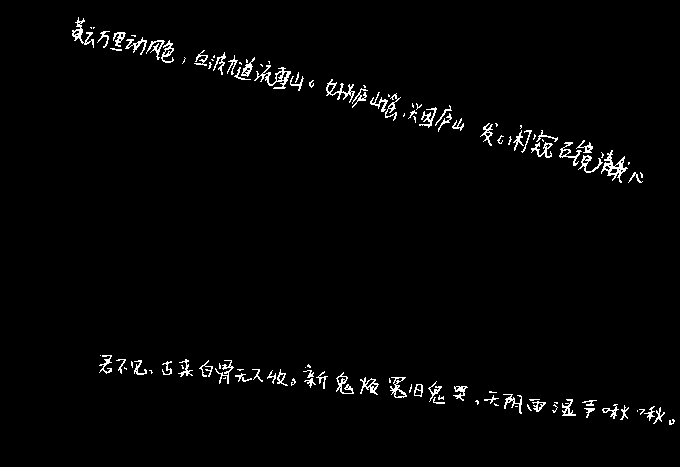 黄云万里动风色，白波九道流雪山。好为庐山谣，兴因庐山发。闲窥石镜清我心
君不见，古来白骨无人收。新鬼烦冤旧鬼哭，天阴雨湿声啾啾。